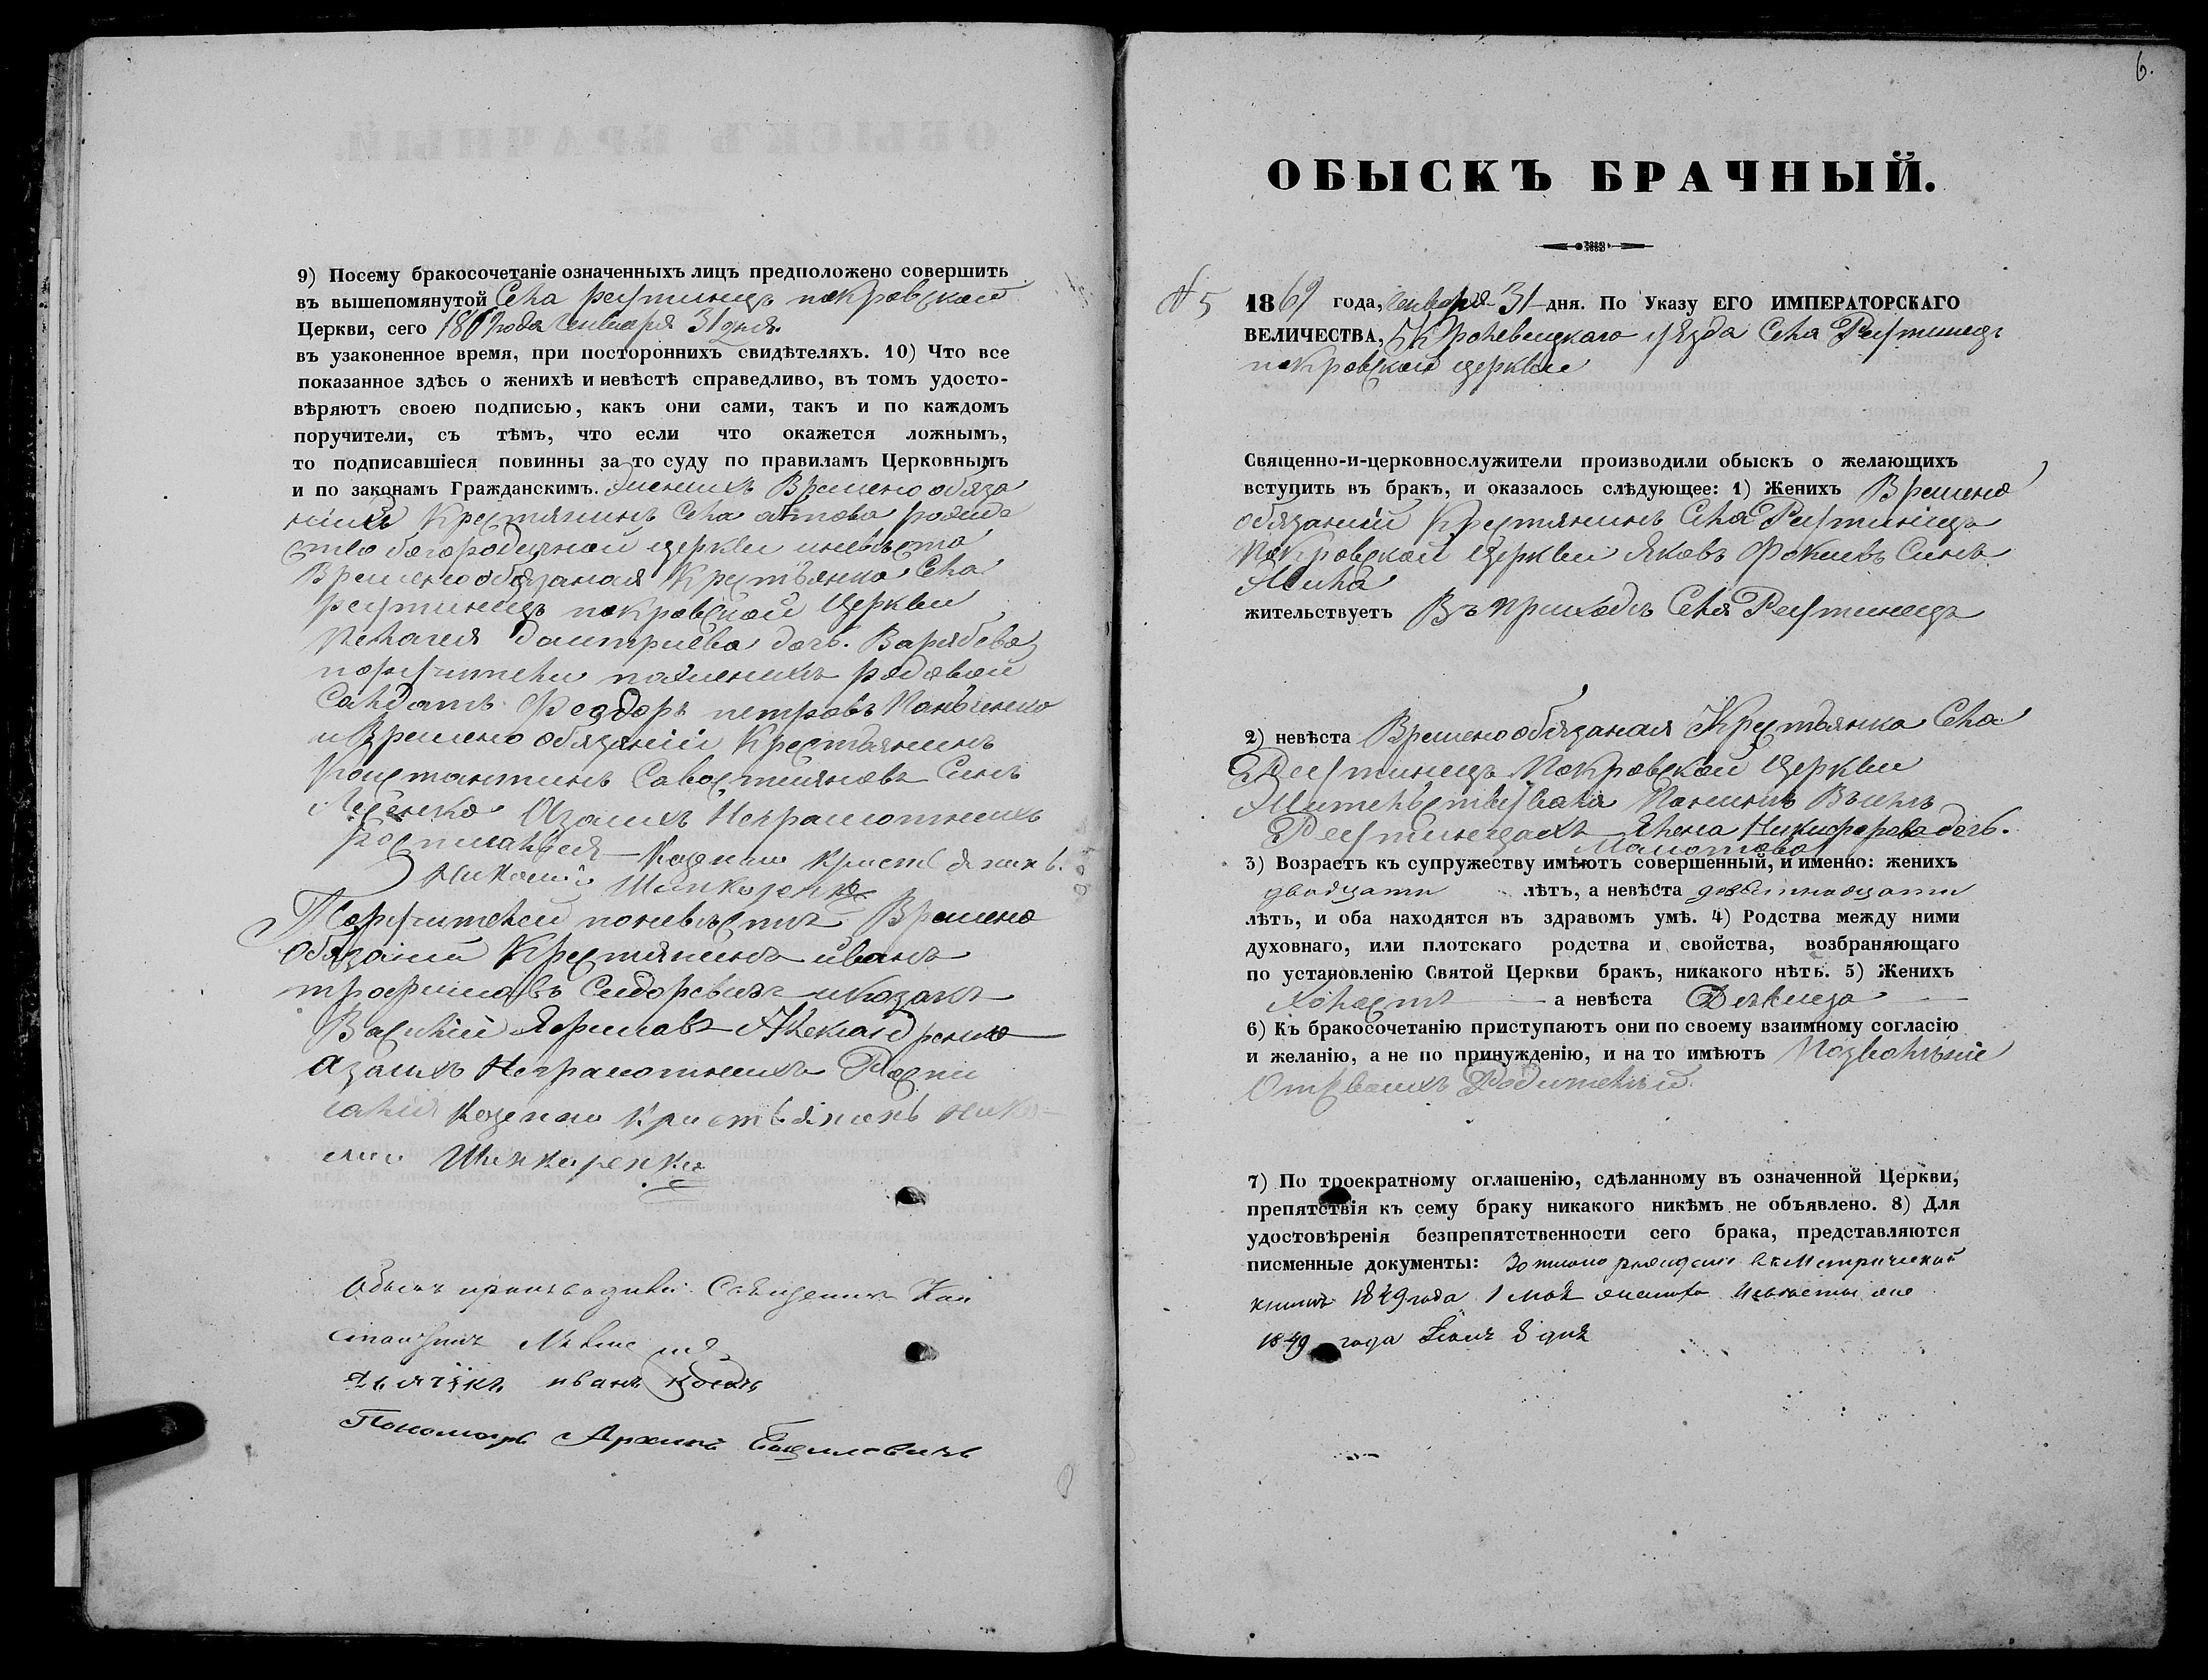 9) Посему бракосочетаніе означенныхъ лицъ предположено совершить
въ вышепомянутой Села реутинецъ покровской
Церкви, сего 1869 года Генваря 31 дня.
въ узаконенное время, при постороннихъ свидѣтеляхъ. 10) Что все
показанное здѣсь о женихѣ и невѣстѣ справедливо, въ томъ удосто-
вѣряютъ своею подписью, какъ они сами, такъ и по каждомъ
поручители, съ тѣмъ, что если что окажется ложнымъ,
то подписавшіеся повинны за то суду по правиламъ Церковнымъ
и по законамъ Гражданскимъ. Женихъ Времено обяза
Крестянинъ Села рожде
ство богородичной церкви иневѣста
Времено обязаная Крестьянка Села
реутинецъ покровской Церкви
Пелагея дмитриева дочь.
поручители поженихѣ рядовой
Салдатъ Феодоръ петровъ
и Времено обязаній Крестьянинъ
Константинъ Савостияновъ Синъ
Азаихъ Неграмотнихъ
Росписался Казенни Кристьянинъ
Николай Шинкаренко
Поручители поневѣсте Времено
обязаній Крестянинъ иванъ
трофимовъ Сидоревичъ икозакъ
Василій Яфимовъ Александренко
азаихъ Неграмотнихъ Роспи
сался Казенни Кристьянинъ Нико
лаи Шинкаренко
Обыскъ производили: Священникъ Кон
стантинъ
Дьячокъ иванъ
Пономарь Архипъ

6.
ОБЫСКЪ БРАЧНЫЙ.
№ 5 1869 года, Генваря 31 дня. По Указу ЕГО ИМПЕРАТОРСКАГО
ВЕЛИЧЕСТВА, Кролевецкаго уѣзда Села Реутинецъ
покровской церкви
Священно-и-церковнослужители производили обыскъ о желающихъ
вступить въ бракъ, и оказалось слѣдующее: 1) Женихъ Времено
обязаній Крестянинъ Села Реутинецъ
Покровской Церкви Яковъ Фокинъ Синъ
жительствуетъ Въ приходѣ Села Реутинецъ
2) невѣста Времено обязаная Крестьянка Села
Реутинецъ Покровской Церкви
Жительствувала
Реутинецахъ Никифорова дочь.
3) Возрастъ къ супружеству имѣютъ совершенный, и именно: женихъ
двадцати лѣтъ, а невѣста девятнадцати
лѣтъ, и оба находятся въ здравомъ умѣ. 4) Родства между ними
духовнаго, или плотскаго родства и свойства, возбраняющаго
по установленію Святой Церкви бракъ, никакого нѣтъ. 5) Женихъ
Холостъ а невѣста Дѣвица
6) Къ бракосочетанію приступаютъ они по своему взаимному согласію
и желанію, а не по принужденію, и на то имѣютъ Позволѣніе
Отсвоихъ Родителѣй.
7) По троекратному оглашенію, сдѣланному въ означенной Церкви,
препятствія къ сему браку никакого никѣмъ не объявлено. 8) Для
удостовѣренія безпрепятственности сего брака, представляются
писменные документы: въ Метрической
книгѣ 1849 года 1 мая жениха Невѣсты
1849 года 8 дня